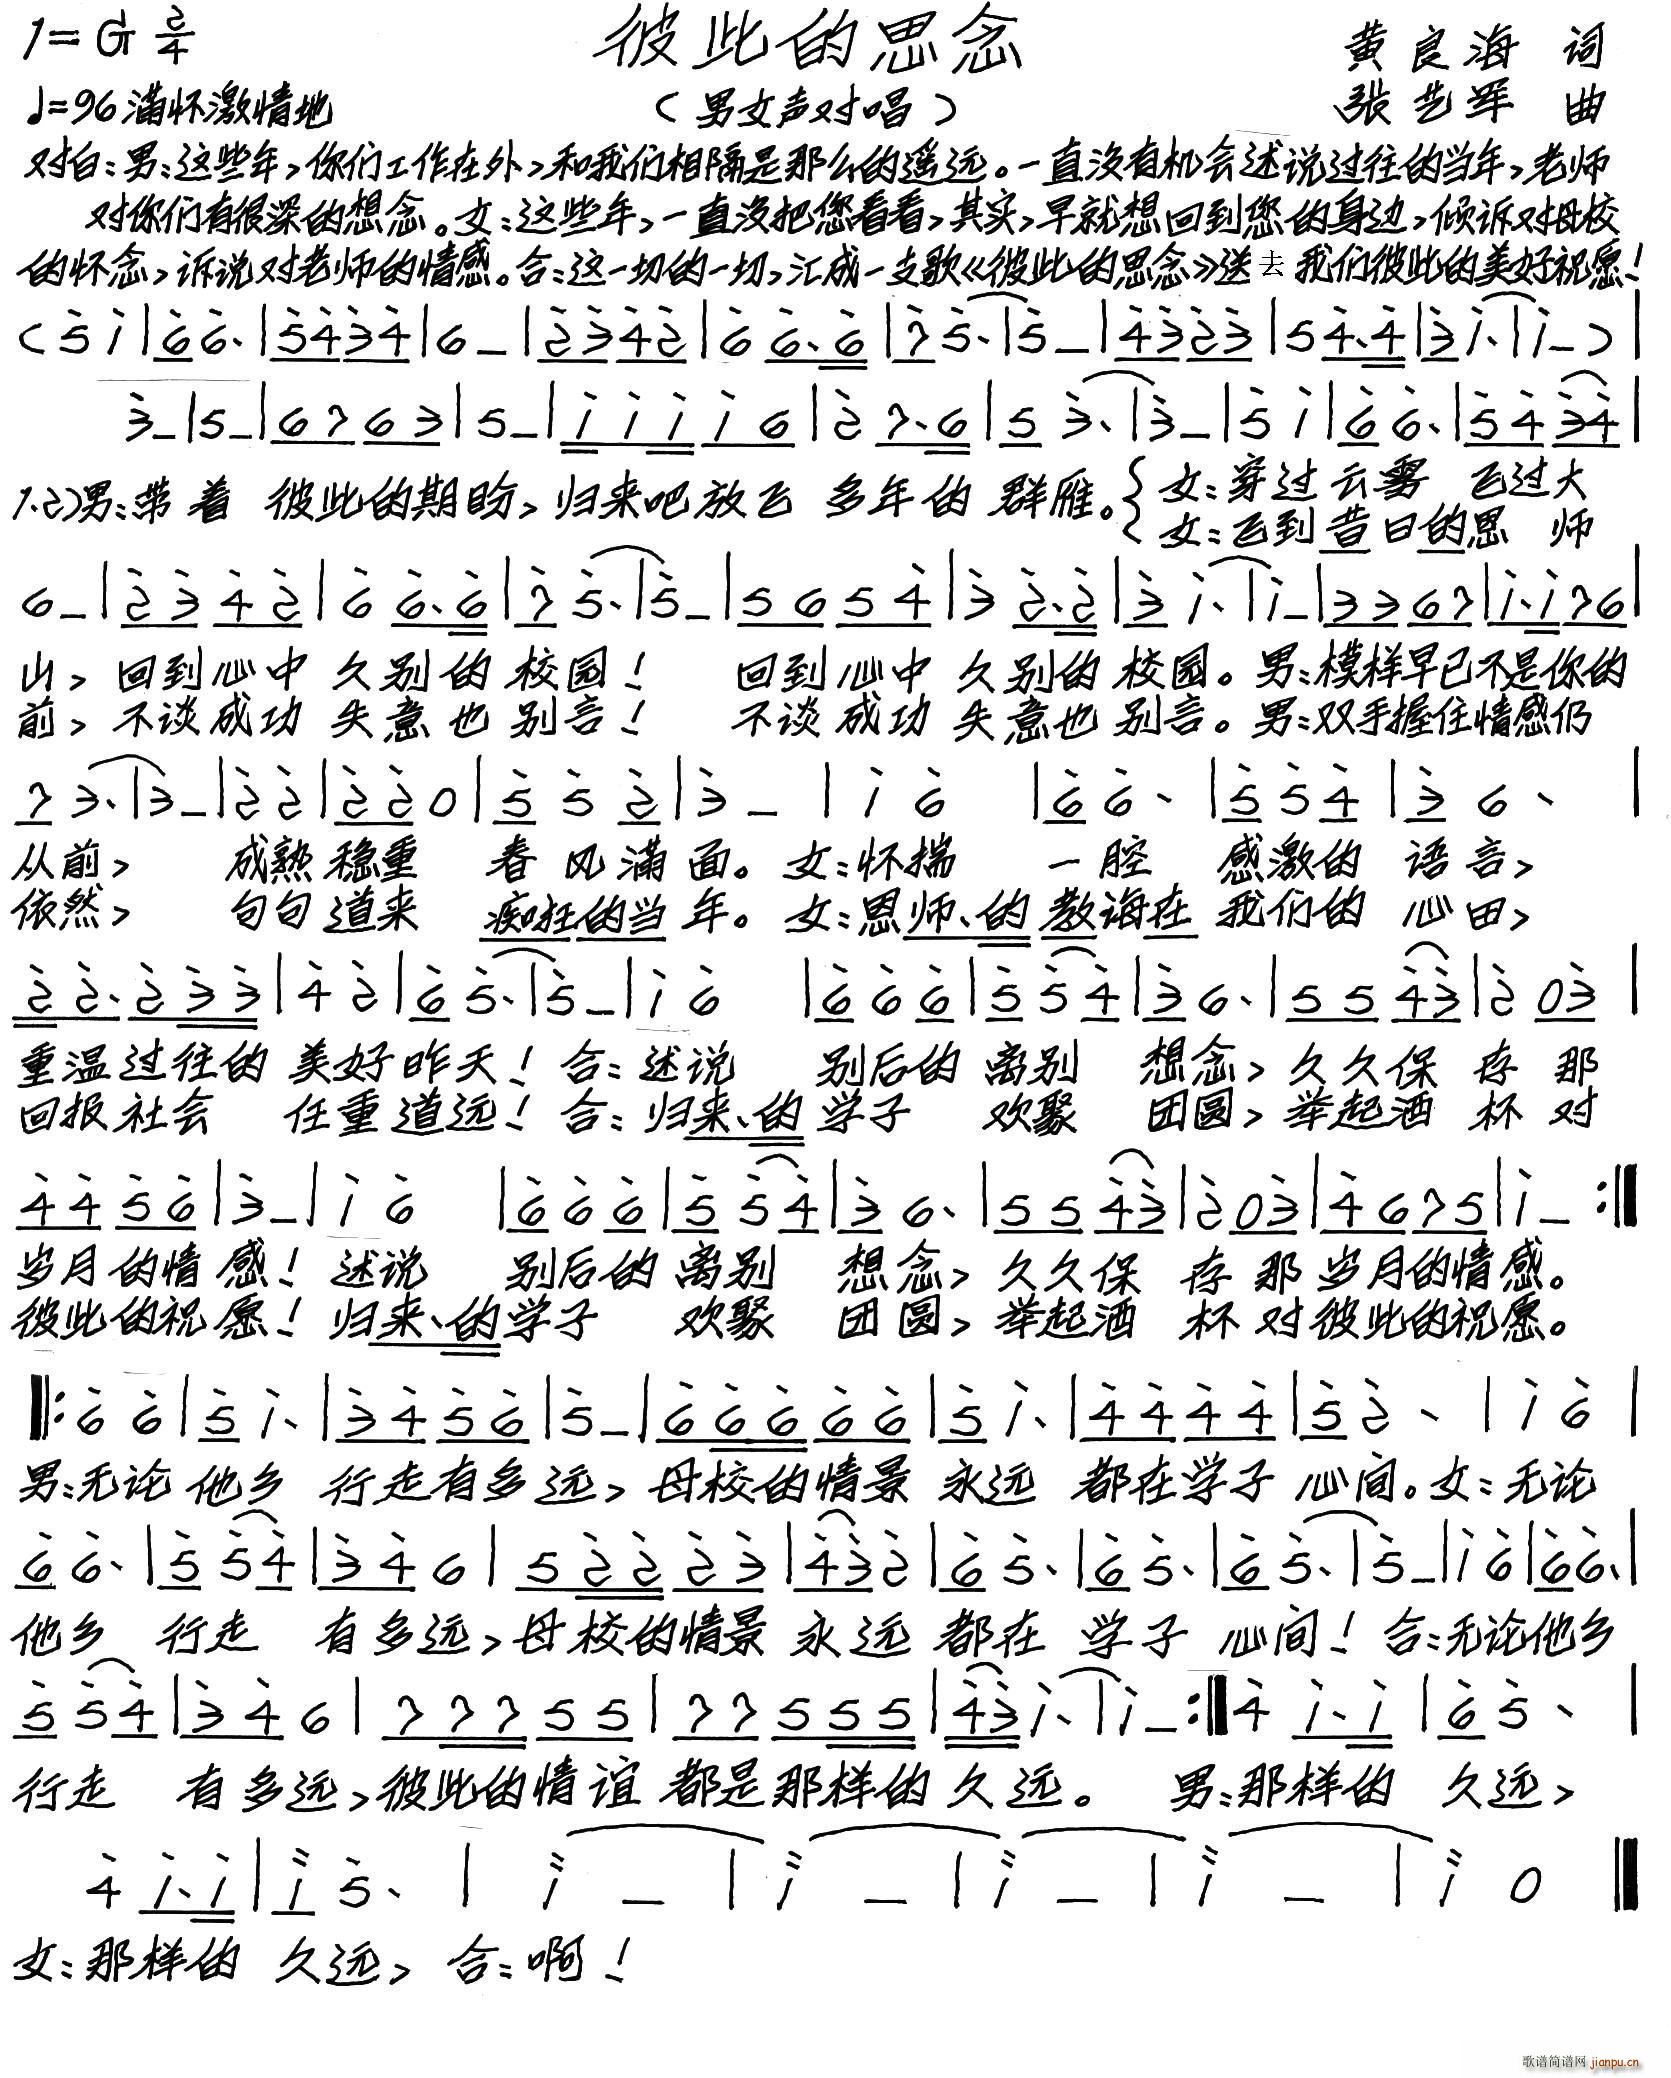 1=G 2/4 彼此的思念 黄良海 词
♩=96 满怀激情地 （男女声对唱） 张艺军 曲
对白：男：这些年，你们工作在外，和我们相隔是那么的遥远。一直没有机会述说过往的当年，老师
对你们有很深的想念。女：这些年，一直没把您看看，其实，早就想回到您的身边，倾诉对母校
的怀念，诉说对老师的情感。合：这一切的一切，汇成一支歌《彼此的思念》送去 我们彼此的美好祝愿！
( 5 i | 6 6. | 5 4 3 4 | 6 – | 2 3 4 2 | 6 6. 6 | 7 5. | 5 – | 4 3 2 3 | 5 4. 4 | 3 i. | i – ) |
3 – | 5 – | 6 7 6 3 | 5 – | i i i i 6 | 2 7. 6 | 5 3. | 3 – | 5 i | 6 6. | 5 4 3 4 |
1.2)男：带着 彼此的期盼，归来吧放飞 多年的 群雁。{ 女：穿过云雾 飞过大
女：飞到昔日的恩 师
6 – | 2 3 4 2 | 6 6. 6 | 7 5. | 5 – | 5 6 5 4 | 3 2. 2 | 3 i. | i – | 3 3 6 7 | i. i 7 6 |
山，回到心中 久别的 校园！ 回到心中 久别的 校园。男：模样早已不是你的
前，不谈成功 失意也 别言！ 不谈成功 失意也 别言。男：双手握住情感仍
7 3. | 3 – | 2 2 | 2 2 0 | 5 5 2 | 3 – | i 6 | 6 6. | 5 5 4 | 3 6. |
从前， 成熟 稳重 春风满面。女：怀揣 一腔 感激的 语言，
依然， 句句 道来 痴狂的当年。女：恩师、的 教诲在 我们的 心田，
2 2. 2 3 3 | 4 2 | 6 5. | 5 – | i 6 | 6 6 6 | 5 5 4 | 3 6. | 5 5 4 3 | 2 0 3 |
重温过往的 美好昨天！合：述说 别后的 离别 想念，久久保 存 那
回报社会 任重道远！合：归来、的 学子 欢聚 团圆，举起酒 杯 对
4 4 5 6 | 3 – | i 6 | 6 6 6 | 5 5 4 | 3 6. | 5 5 4 3 | 2 0 3 | 4 6 7 5 | i – :‖
岁月的情感！述说 别后的 离别 想念，久久保 存 那 岁月的情感。
彼此的祝愿！归来、的学子 欢聚 团圆，举起酒 杯 对彼此的祝愿。
‖: 6 6 | 5 i. | 3 4 5 6 | 5 – | 6 6 6 6 6 | 5 i. | 4 4 4 4 | 5 2. | i 6 |
男：无论 他乡 行走有多远，母校的情景 永远 都在学子 心间。女：无论
6 6. | 5 5 4 | 3 4 6 | 5 2 2 2 3 | 4 3 2 | 6 5. | 6 5. | 6 5. | 5 – | i 6 | 6 6. |
他乡 行走 有多远，母校的情景 永远 都在 学子 心间！合：无论他乡
5 5 4 | 3 4 6 | 7 7 7 5 5 | 7 7 5 5 5 | 4 3 i. | i – :‖ 4 i. i | 6 5. |
行走 有多远，彼此的情谊 都是那样的 久远。 男：那样的 久远，
4 i. i | i 5. | i – | i – | i – | i – | i 0 ‖
女：那样的 久远，合：啊！
歌谱简谱网 jianpu.cn